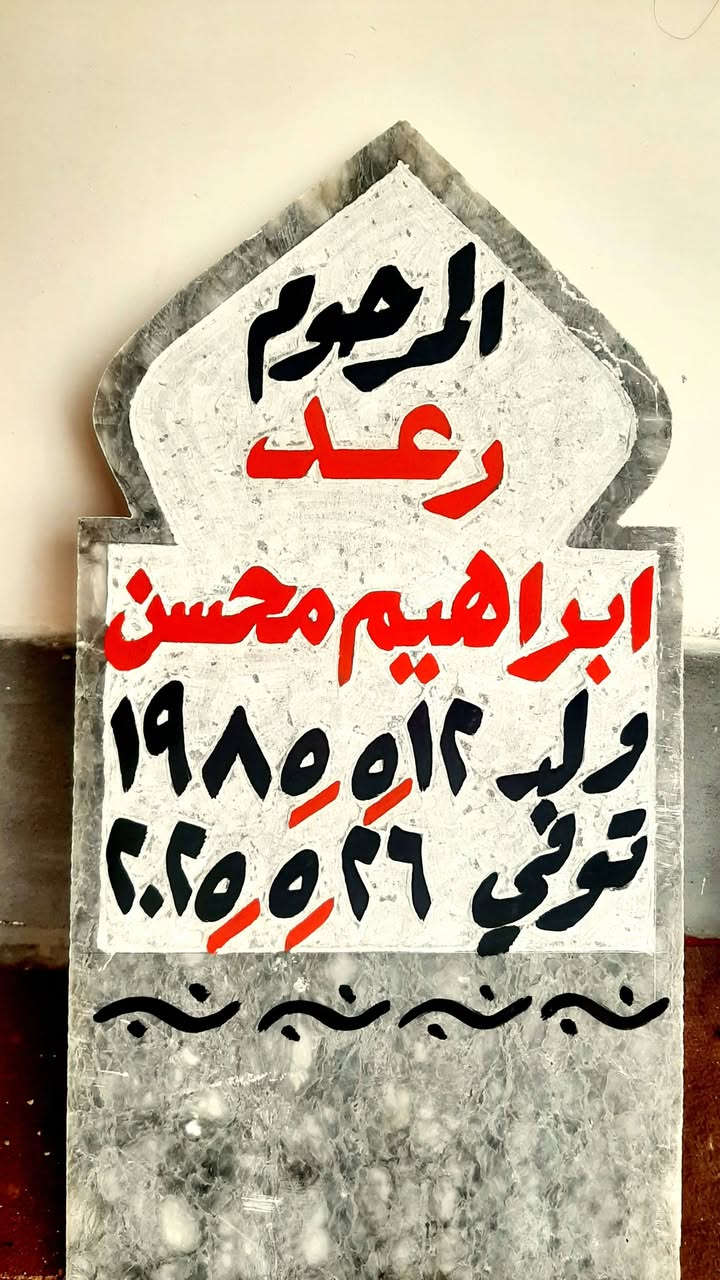 المرحوم
رعد
ابراهيم محسن
ولد ١٢/٥/١٩٨٥
توفي ٢٦/٥/٢٠٢٥